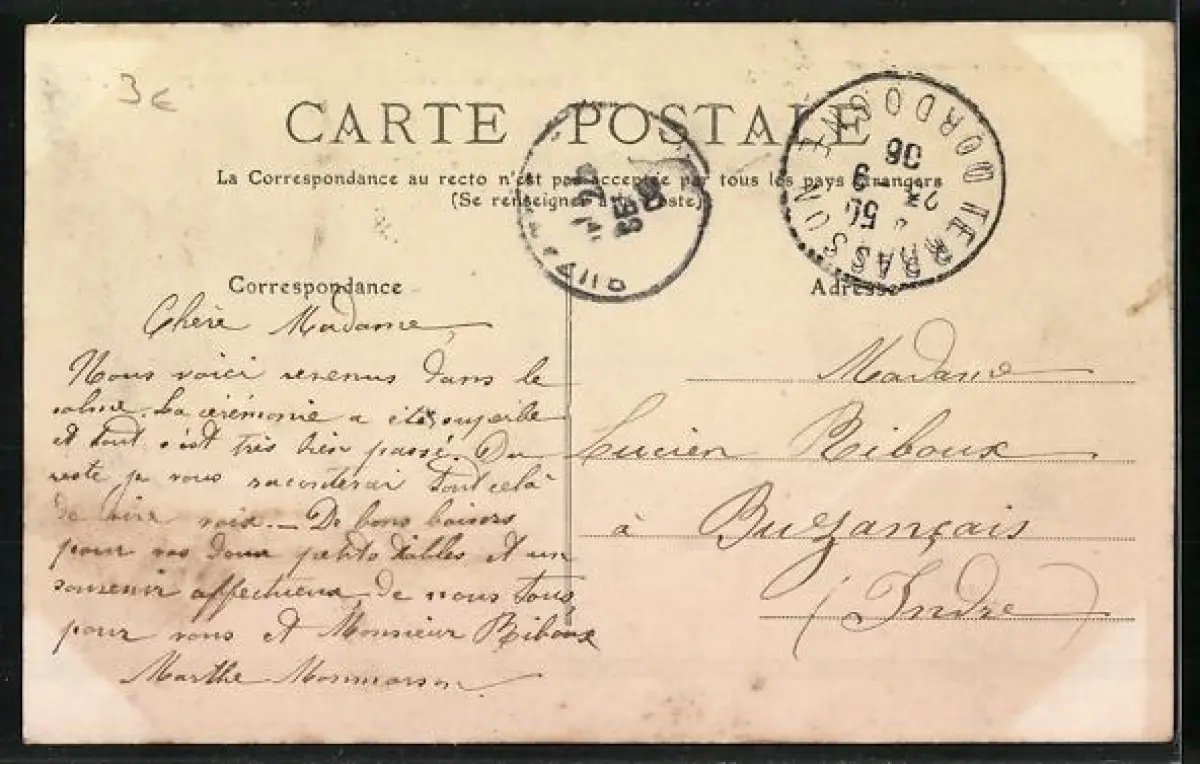 3c
CARTE POSTALE
La Correspondance au recto n'est pas acceptée par tous les pays étrangers
(Se renseigner à la Poste)
Correspondance
Chère Madame,
Nous voici revenus dans le
calme. La cérémonie a été superbe
et tout s'est très bien passé. Du
reste je vous raconterai tout celà
de vive voix. — De bons baisers
pour vos deux petits diables et un
souvenir affectueux de nous tous
pour vous et Monsieur Riboux
Marthe Monmarson
TERRASSON DORDOGNE
23 - 9
06
Adresse
Madame
Lucien Riboux
à Buzançais
(Indre)